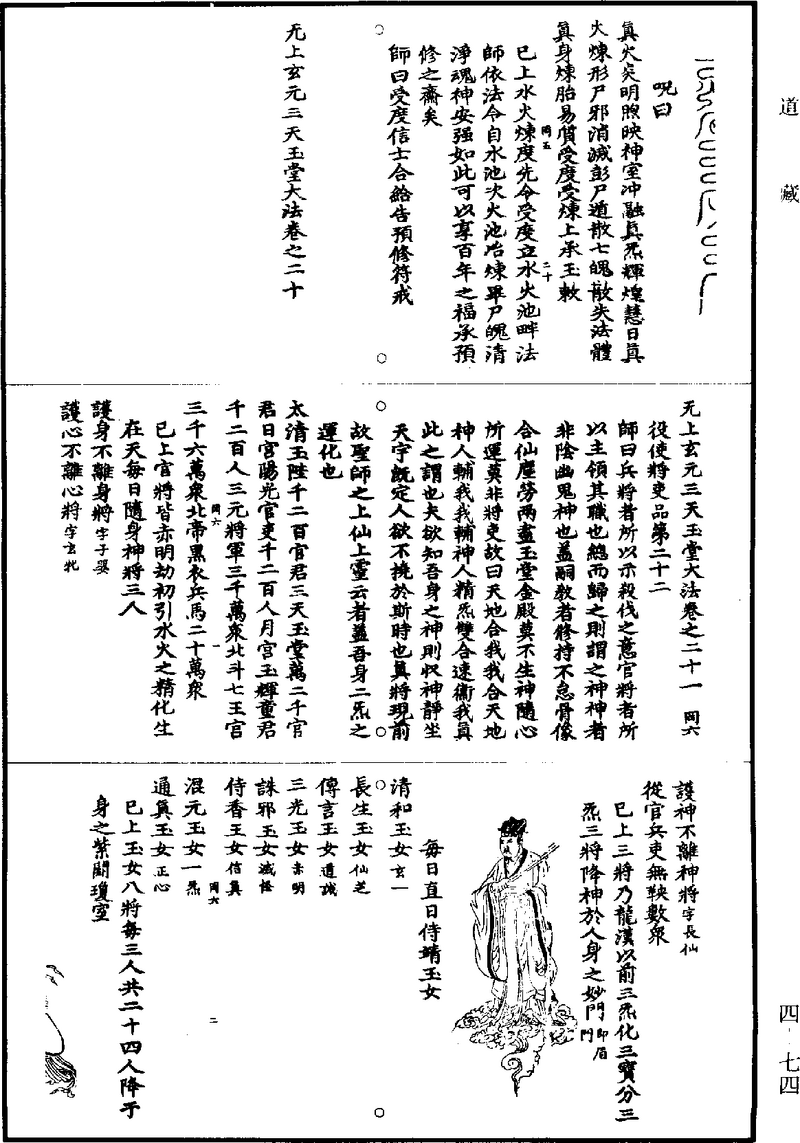 道藏
呪曰
真火炎明煦映神室冲融真炁輝煌慧日真
火煉形尸邪消滅彭尸遁散七魄散失法體
真身煉胎易質受度受煉上承玉敕
已上水火煉度先令受度立水火池畔法
師依法令自水池次火池冶煉畢尸魄清
淨魂神安强如此可以享百年之福承預
修之齋矣
岡五
二十
師曰受度信士合給告預修符戒
无上玄元三天玉堂大法卷之二十
无上玄元三天玉堂大法卷之二十一 岡六
役使將吏品第二十二
師曰兵將者所以示殺伐之意官將者所
以主領其職也總而歸之則謂之神神者
非陰幽鬼神也蓋嗣教者修持不怠骨像
合仙塵勞兩盡玉堂金殿莫不生神隨心
所運莫非將吏故曰天地合我我合天地
神人輔我我輔神人精炁雙合速衞我真
此之謂也夫欲知吾身之神則収神靜坐
天宇既定人欲不撓於斯時也真將現前
故聖師之上仙上靈云者蓋吾身二炁之
運化也
太清玉陛千二百官君三天玉堂萬二千官
君日宮陽光官吏千二百人月宮玉輝童君
千二百人三元將軍三千萬衆北斗七王宮
三千六萬衆北帝黑衣兵馬二十萬衆
岡六
一
已上官將皆赤明劫初引水火之精化生
在天每日隨身神將三人
護身不離身將字子嬰
護心不離心將字玄牝
護神不離神將字長仙
從官兵吏無鞅數衆
已上三將乃龍漢以前三炁化三寶分三
炁三將降神於人身之妙門即眉門
每日直日侍靖玉女
清和玉女玄一
長生玉女仙芝
傳言玉女道誠
三光玉女赤明
誅邪玉女滅怪
侍香玉女信真
混元玉女一炁
岡六
二
通真玉女正心
已上玉女八將每三人共二十四人降于
身之紫闕瓊室
四-七四